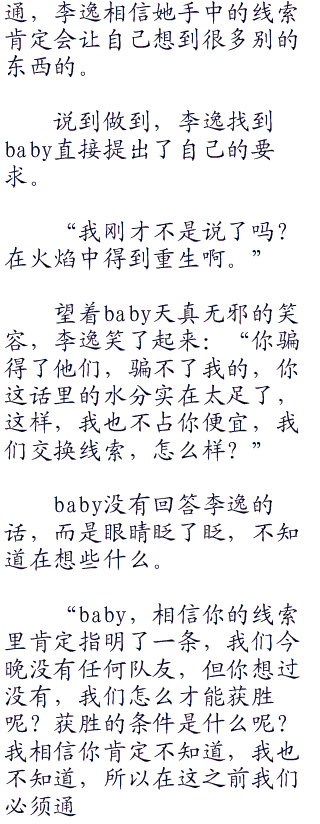 通，李逸相信她手中的线索
肯定会让自己想到很多别的
东西的。
说到做到，李逸找到
baby直接提出了自己的要
求。
“我刚才不是说了吗？
在火焰中得到重生啊。”
望着baby天真无邪的笑
容，李逸笑了起来：“你骗
得了他们，骗不了我的，你
这话里的水分实在太足了，
这样，我也不占你便宜，我
们交换线索，怎么样？”
baby没有回答李逸的
话，而是眼睛眨了眨，不知
道在想些什么。
“baby，相信你的线索
里肯定指明了一条，我们今
晚没有任何队友，但你想过
没有，我们怎么才能获胜
呢？获胜的条件是什么呢？
我相信你肯定不知道，我也
不知道，所以在这之前我们
必须通